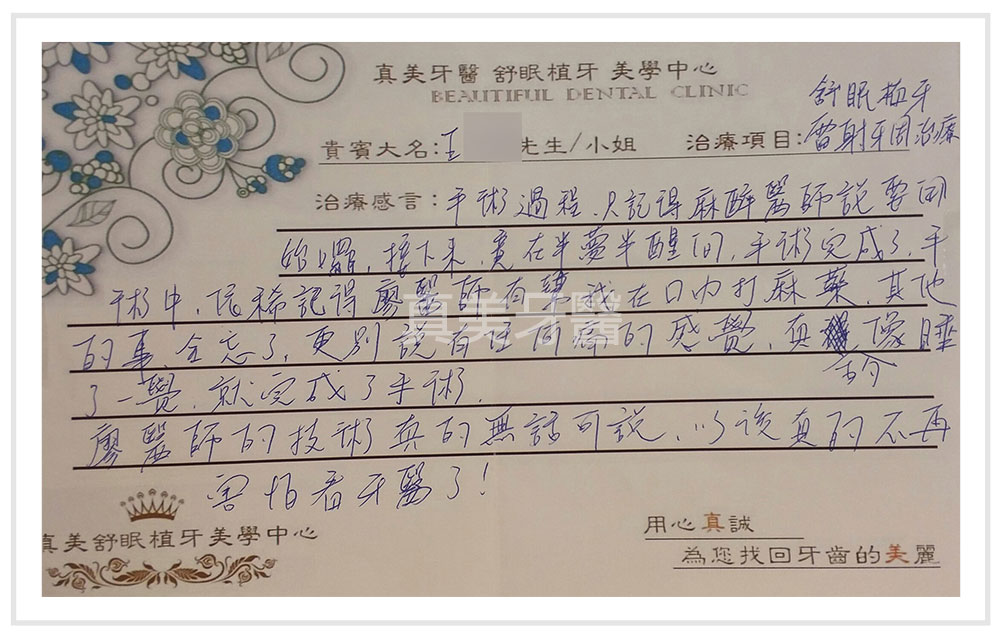 真美牙醫 舒眠植牙 美學中心
BEAUTIFUL DENTAL CLINIC
貴賓大名:王 先生/小姐 治療項目:舒眠植牙
雷射牙周治療
治療感言:手術過程,只記得麻醉醫師說要開
始囉,接下來,實在半夢半醒間,手術完成了,手
術中,依稀記得廖醫師有幫我在口內打麻藥,其他
的事,全忘了,更別說有任何痛的感覺,真 像睡
了一覺,就完成了手術.
廖醫師的技術真的無話可說,以後真的不再
害怕看牙醫了!
真美牙醫
真美舒眠植牙美學中心
用心真誠
為您找回牙齒的美麗